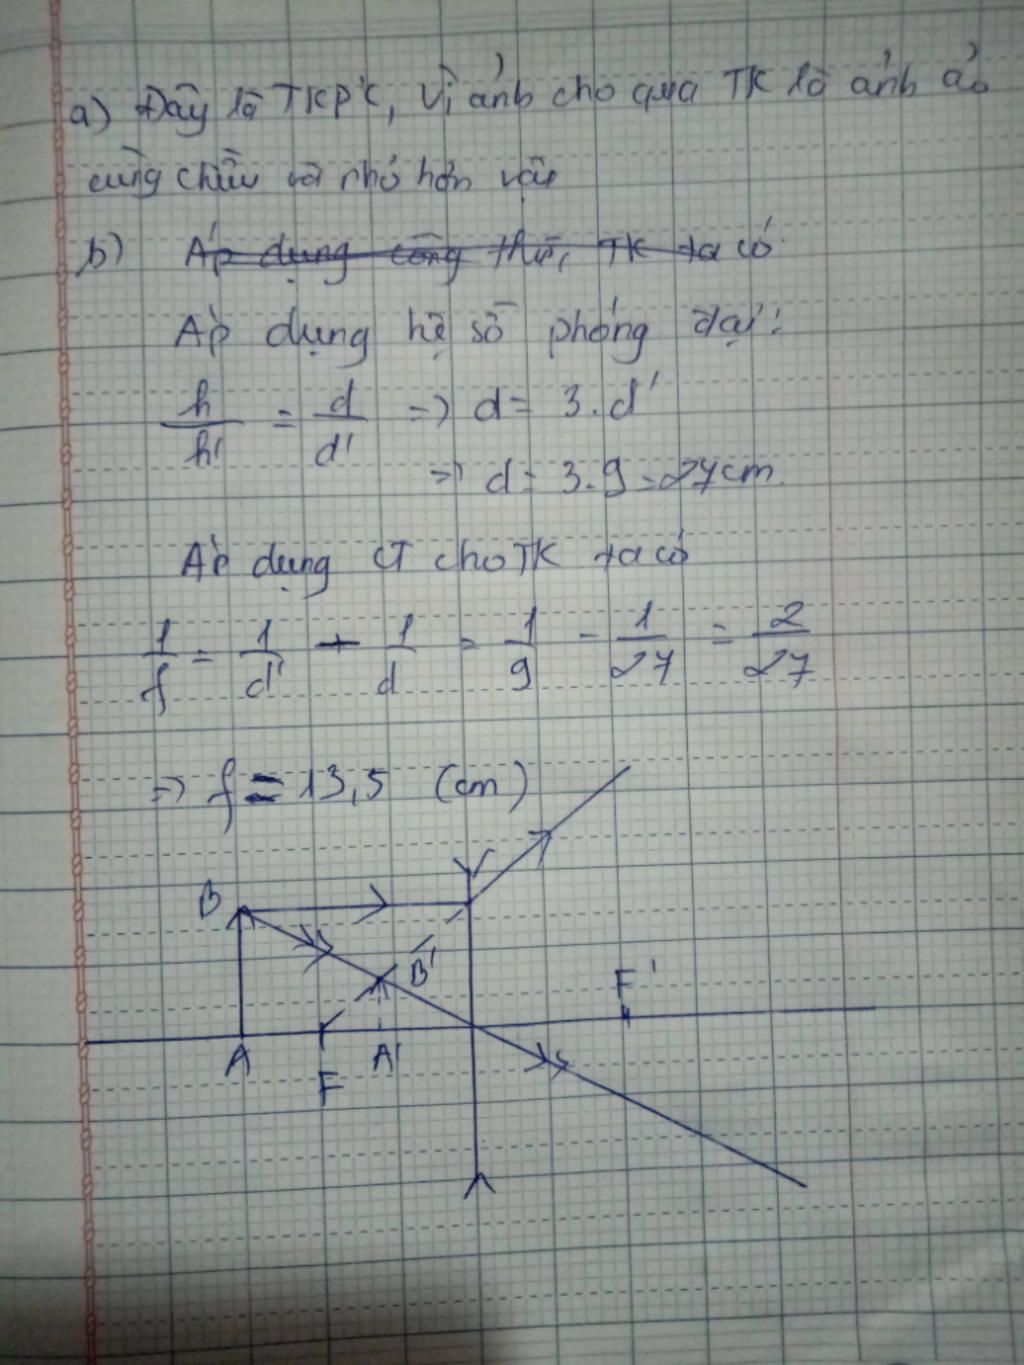 a) Đây là TKPK, Vì ảnh cho qua TK là ảnh ảo
cùng chiều và nhỏ hơn vật
b) Áp dụng công thức TK ta có
Áp dụng hệ số phóng đại:
h/h' = d/d' => d = 3.d'
=> d = 3.9 = 27cm.
Áp dụng CT cho TK ta có
1/f = 1/d' - 1/d = 1/9 - 1/27 = 2/27
=> f = 13,5 (cm)
B
B'
F'
A
F
A'